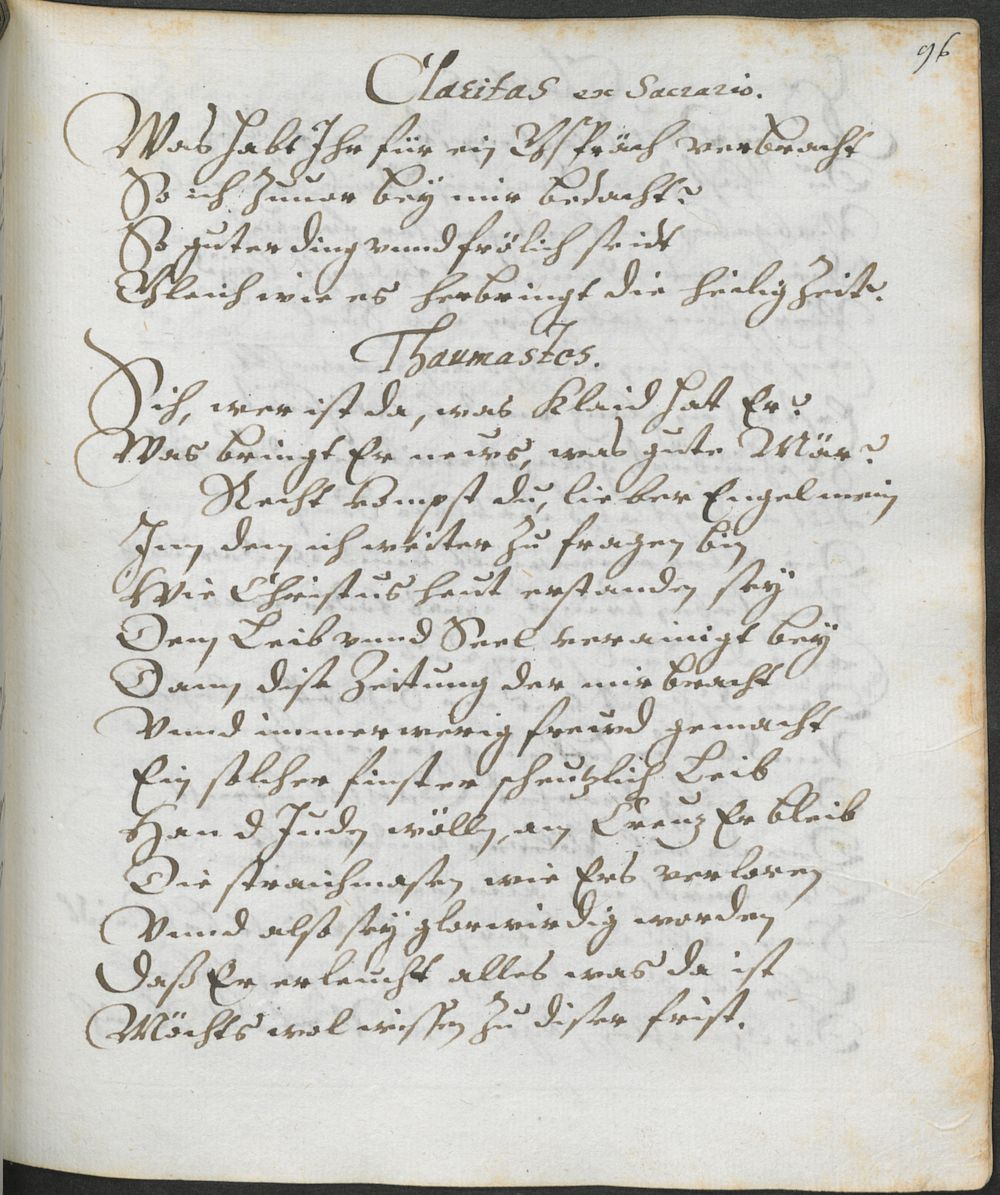 96
Claritas ex Sacrario.
Was habt Ihr für ein Gspräch verbracht
So ich zuuor bey mir bedacht?
So guter ding vnnd frölich seidt
Gleich wie es herbringt die heilig Zeit.
Thaumastes.
Sih, wer ist da, was Klaid hat Er?
Was bringt Er neues, was gute Mär?
Recht kompst du, lieber Engel mein
Inn dem ich weiter zu fragen bin
Wie Christus heut erstanden sey
Dem Leib vnnd Seel verainigt bey
Dann dise Zeitung der mir bracht
Vnnd immerwerig freud gemacht
Ein solcher finster scheutzlich Leib
Han d Juden wölln, am Creutz Er bleib
Die straichmasen wie Ers verloren
Vnnd also sey glorwirdig worden
Daß Er erleucht alles was da ist
Möchts wol wissen zu diser frist.